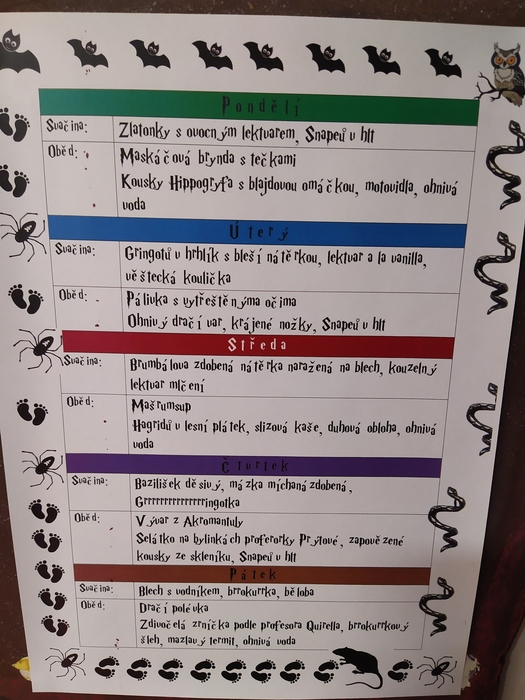 Pondělí
Svačina:
Zlatonky s ovocným lektvarem, Snapeů v hlt
Oběd:
Maskáčová brynda s tečkami
Kousky Hippogryfa s blajdovou omáčkou, motovidla, ohnivá
voda
Úterý
Svačina:
Gringotů v hrhlík s bleší nátěrkou, lektvar a la vanilla,
věštecká koulička
Oběd:
Pálivka s vytřeštěnýma očima
Ohnivý dračí var, krájené nožky, Snapeů v hlt
Středa
Svačina:
Brumbálova zdobená nátěrka naražená na blech, kouzelný
lektvar mlčení
Oběd:
Mašrumsup
Hagridů v lesní plátek, slizová kaše, duhová obloha, ohnivá
voda
Čtvrtek
Svačina:
Bazilišek děsivý, mázka míchaná zdobená,
Grrrrrrrrrrrrrringotka
Oběd:
Vývar z Akromantuly
Selátko na bylinkách proferorky Prýtové, zapovězené
kousky ze skleníku, Snapeů v hlt
Pátek
Svačina:
Blech s vodníkem, brrokurrka, běloba
Oběd:
Dračí polévka
Zdivočelá zrníčka podle profesora Quirella, brrokurrkový
šleh, mazlavý termit, ohnivá voda